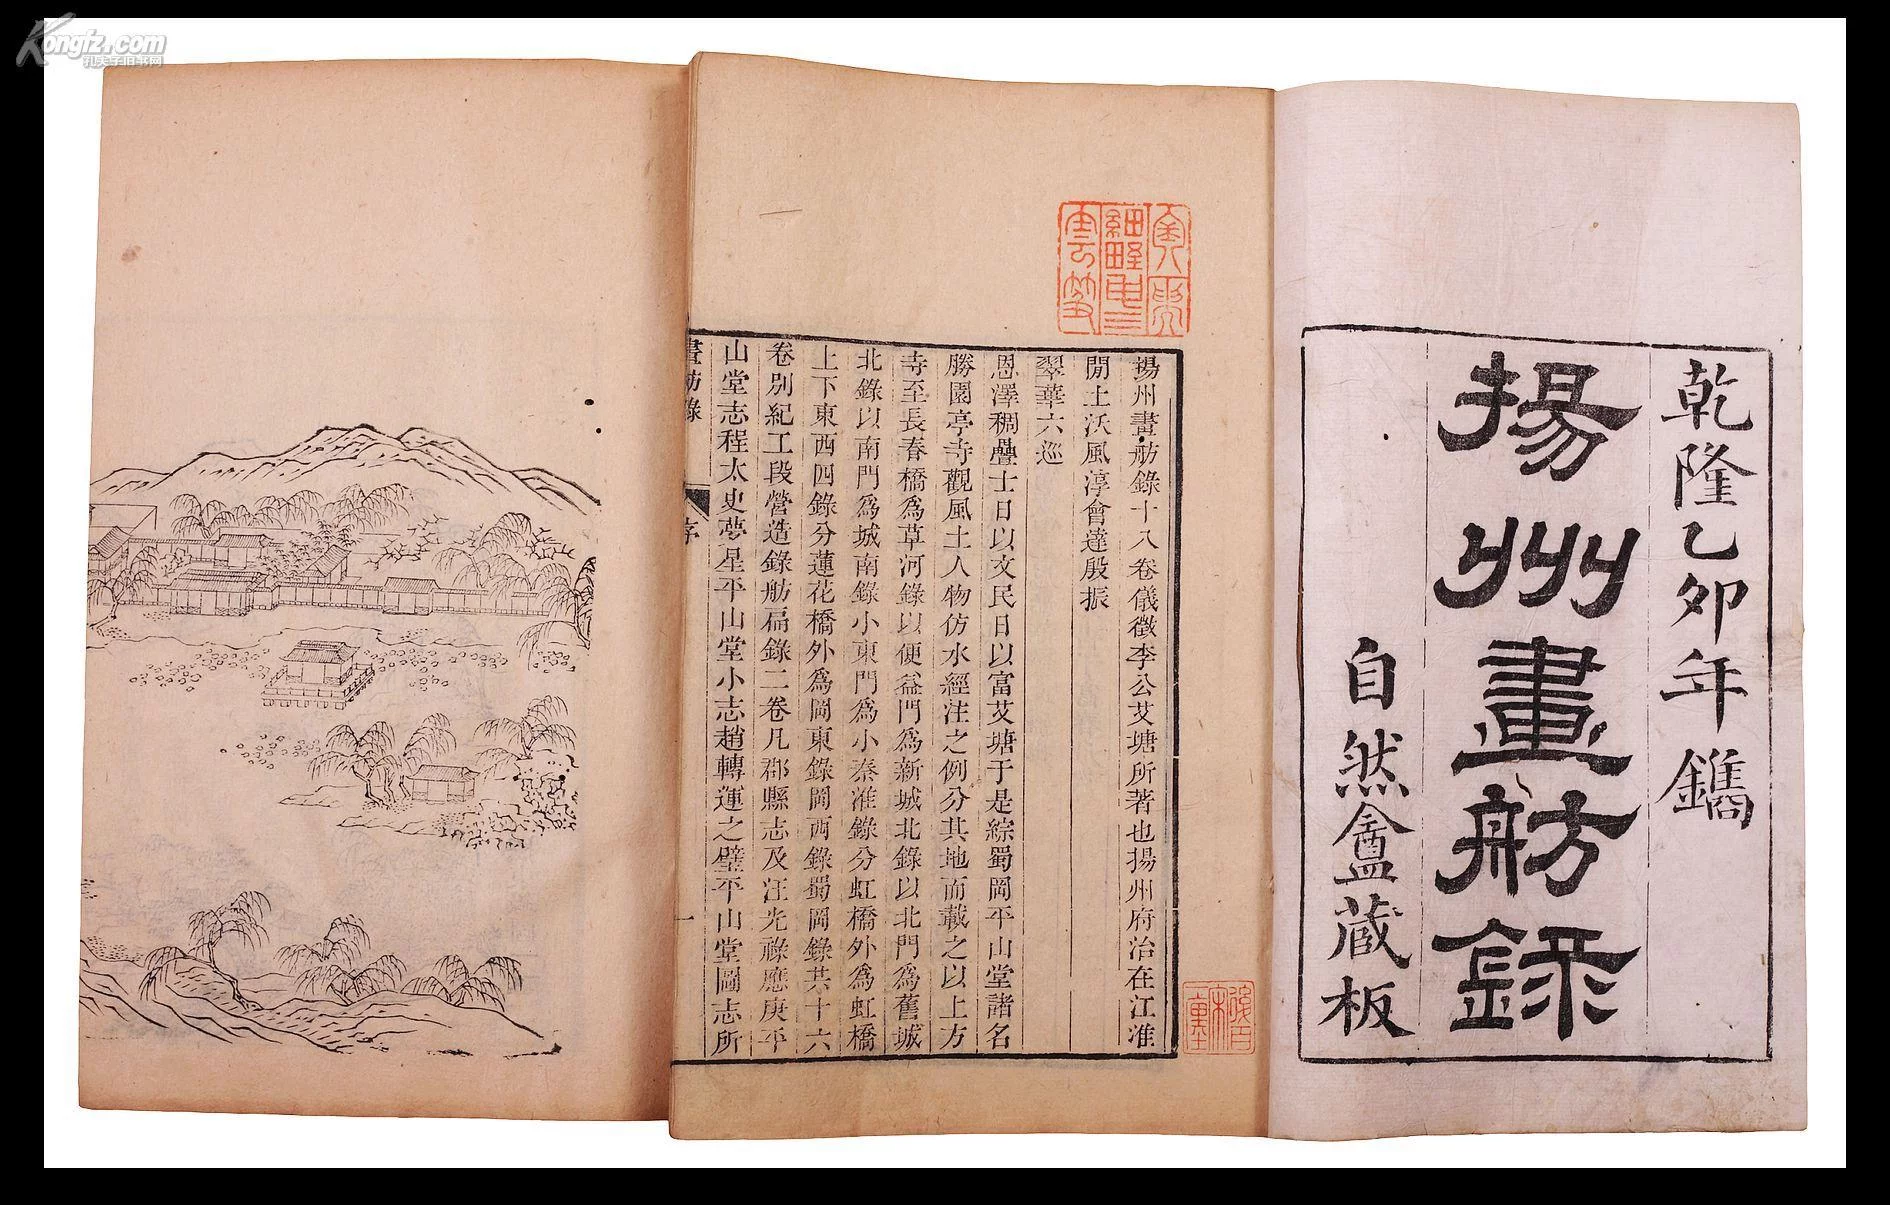 乾隆乙卯年鐫
揚州畫舫錄
自然盦藏板
揚州畫舫錄十八卷儀徵李公艾塘所著也揚州府治在江淮
閒土沃風淳會達殷振
翠華六巡
恩澤稠疊士日以文民日以富艾塘于是綜蜀岡平山堂諸名
勝園亭寺觀風土人物仿水經注之例分其地而載之以上方
寺至長春橋為草河錄以便益門為新城北錄以北門為舊城
北錄以南門為城南錄小東門為小秦淮錄分虹橋外為虹橋
上下東西四錄分蓮花橋外為岡東錄岡西錄蜀岡錄共十六
卷別紀工段營造錄舫扁錄二卷凡郡縣志及汪光祿應庚平
山堂志程太史夢星平山堂小志趙轉運之璧平山堂圖志所
畫舫錄
序
一
Kongfz.com
孔夫子旧书网